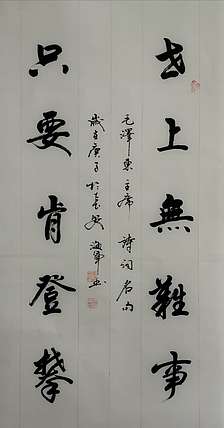 世上無難事
只要肯登攀
毛澤東主席 詩詞名句
歲在庚子於春 海軍書